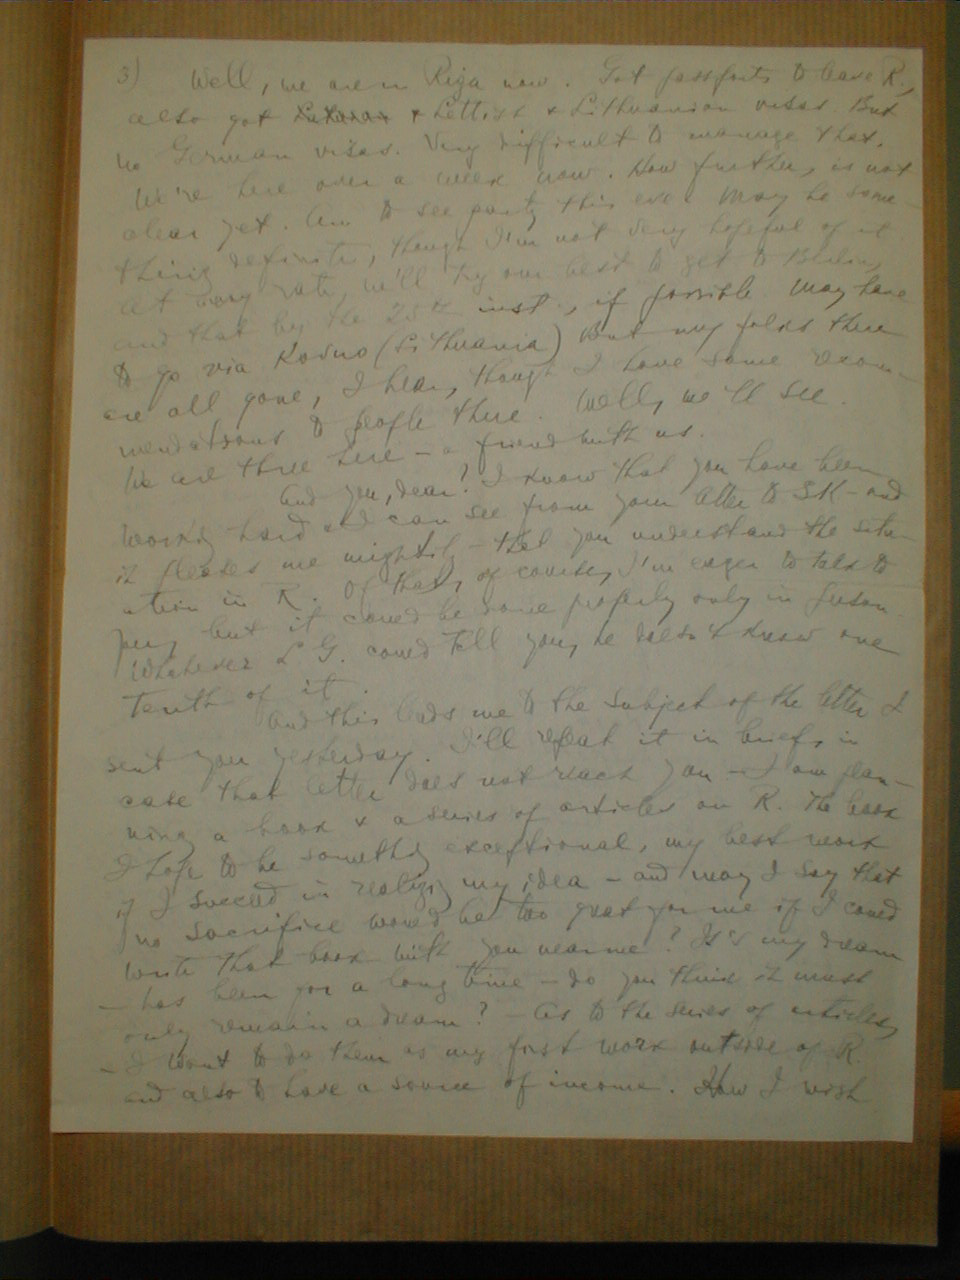 3) Well, we are in Riga now. Got passports to leave R.,
also got & Lettish & Lithuanian visas. But
no German visas. Very difficult to manage that.
We're here over a week now. How further, is not
clear yet. Am to see party this eve. May be some-
thing definite, though I'm not very hopeful of it
At any rate, we'll try our best to get to Berlin,
and that by the 25th inst., if possible. May have
to go via Kovno (Lithuania) But my folks there
are all gone, I hear, though I have some recom-
mendations to people there. Well, we'll see.
We are three here – a friend with us.
And you, dear? I know that you have been
working hard and can see from your letter to SK – and
it pleases me mightily – that you understand the situ-
ation in R. Of that, of course, I'm eager to talk to
you, but it could be done properly only in person.
Whatever L G. could tell you, he doesn't know one
tenth of it.
And this leads me to the subject of the letter I
sent you yesterday. I'll repeat it in brief, in
case that letter does not reach you – I am plan-
ning a book & a series of articles on R. The book
I hope to be something exceptional, my best work
if I succeed in realizing my idea – and may I say that
no sacrifice would be too great for me if I could
write that book with you near me? It's my dream
– has been for a long time – do you think it must
only remain a dream? – As to the series of articles,
– I want to do them as my first work outside of R.
and also to have a source of income. How I wish